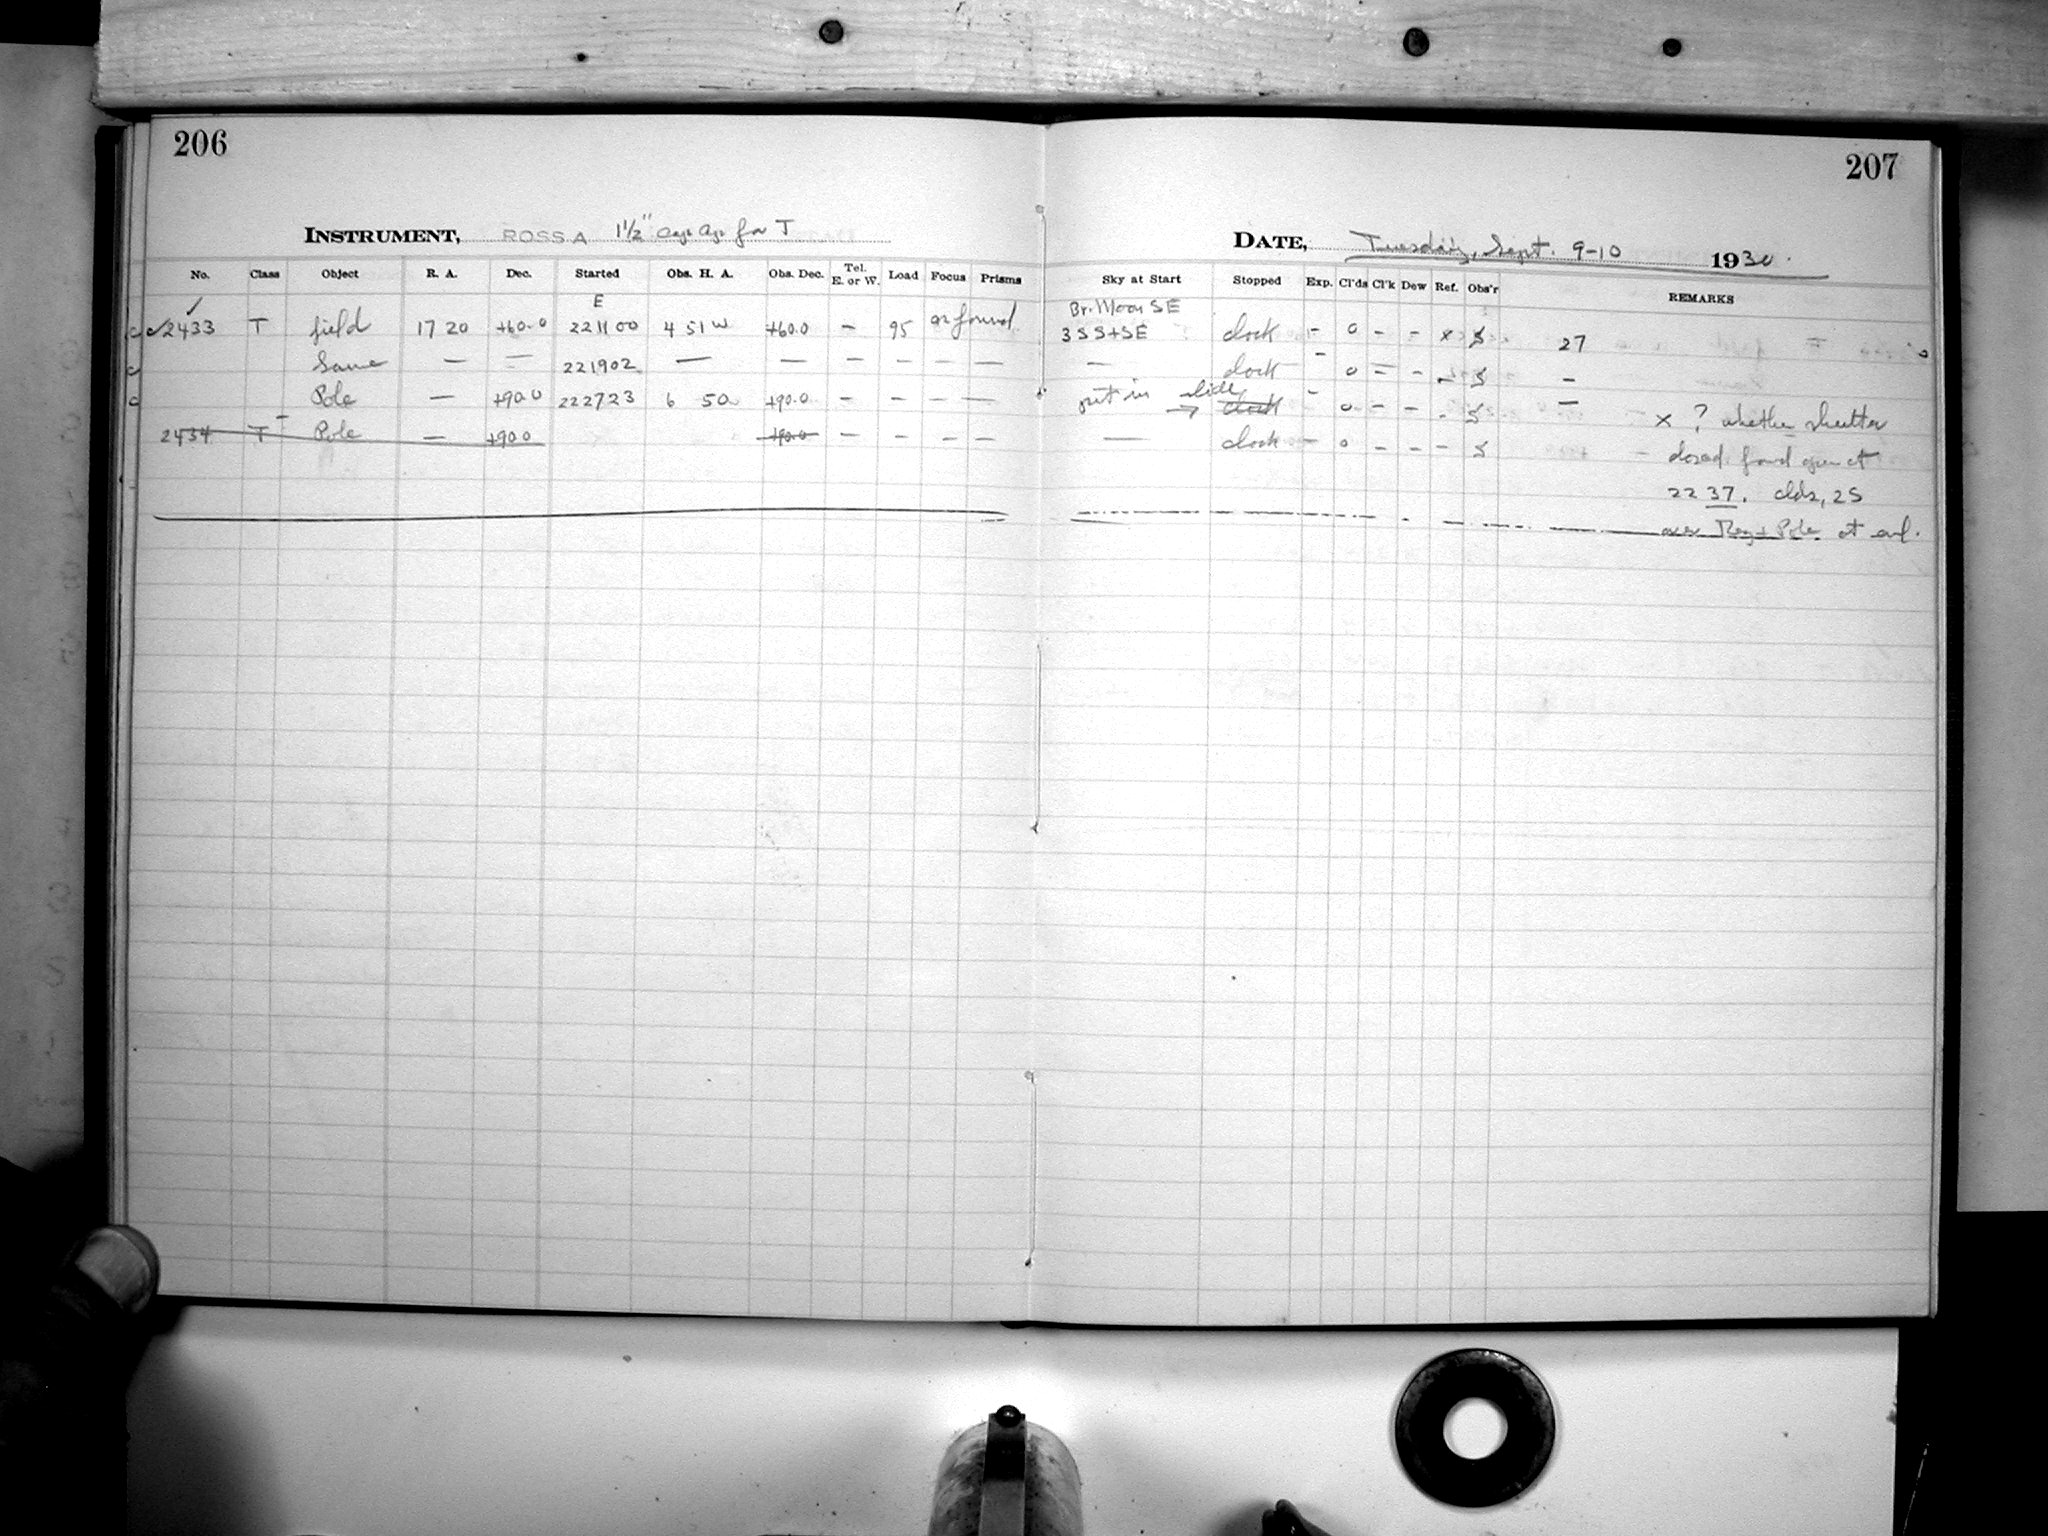 206
INSTRUMENT, ROSS A 1 1/2" Cap Ap for T
No. Class Object R. A. Dec. Started Obs. H. A. Obs. Dec. Tel. E. or W. Load Focus Prisms
E
c c 2433 T field 17 20 +60.0 221100 4 51 W +60.0 – 95 as found
c Same — — 221902 — — – – – —
c Pole — +90.0 222723 6 50 +90.0 – – – —
2434 T Pole — +90.0 +90.0 – – – –
207
DATE, Tuesday, Sept. 9-10 1930.
Sky at Start Stopped Exp. Cl'ds Cl'k Dew Ref. Obs'r REMARKS
Br. Moon SE
3 S S+SE clock – 0 – – x S 27
— clock – 0 – – – S –
put in slide → clock – 0 – – - S –
x ? whether shutter
— clock – 0 – – – S closed. found open at
22 37. clds, 2S
over Reg + Pole at end.